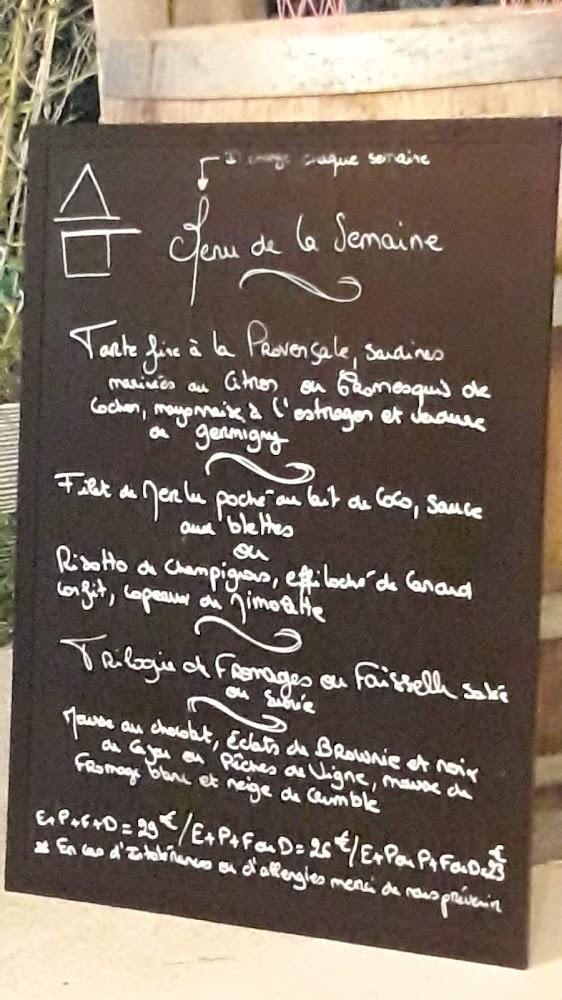 chaque semaine
Menu de la Semaine
Tarte fine à la Provençale, sardines
marinées au Citron ou Cromesquis de
Cochon, mayonnaise à l'estragon et verdure
de germigny
Filet de Merlu poché au lait de Coco, sauce
aux blettes
ou
Risotto de Champignons, effiloché de Canard
Confit, copeaux de Mimolette
Trilogie de Fromages ou Faisselle salée
ou sucrée
Mousse au chocolat, Eclats de Brownie et noix
de Cajou ou Pêches de Vigne, mousse de
Fromage blanc et neige de Crumble
E+P+F+D = 29€ / E+P+F ou D = 26€ / E+P ou P+F ou D = 23€
* En cas d'Intolérances ou d'allergies merci de nous prévenir